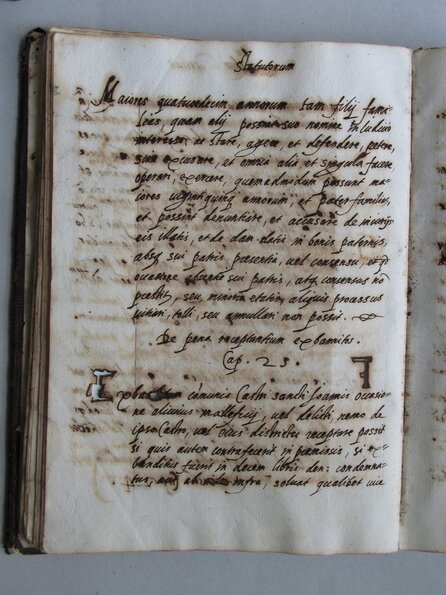 Statutorum
Maiores quatuordecim annorum tam filij fami-
lias, quam alij possint suo nomine in Iudicio
interesse, ac stare, agere, et defendere, petere,
sua excusere, et omnia alia et singula facere
operari, exercere, quemadmodum possunt ma-
iores viginti quinq annorum, et pater familias,
et possint denuntiare, et accusare de iniurijs
eis illatis, et de dam datis in bonis paternis,
absq sui patris presentia, vel consensu, et
occasione absentie sui patris, atq consensus no
prestiti, seu minoris etatis, aliquis processus
vitiari, tolli, seu annullari non possit.
De pena receptantium exbannitos.
Cap. 25.
F
Exbannitum comunis Castri sancti Ioannis occasio-
ne alicuius maleficij, vel delicti, nemo de
ipso Castro, vel eius districtu receptare possit
si quis autem contrafecerit in premissis, si ex-
banditus fuerit in decem libris den: condemna-
tus, infra, soluat qualibet vice